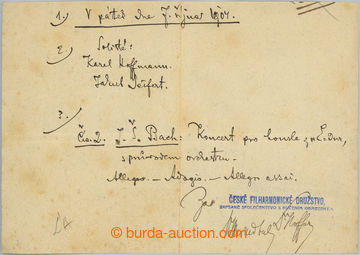 1.) V pátek dne 7. října 1904.
2.) Solisté:
Karel Hoffmann.
Jakub Seifert.
3.
Čís. 2. J. S. Bach: Koncert pro housle z E dur,
s průvodem orchestru.
Allegro. — Adagio. — Allegro assai.
ČESKÉ FILHARMONICKÉ DRUŽSTVO,
ZAPSANÉ SPOLEČENSTVO S RUČENÍM OBMEZENÝM.
© burda-auction.com